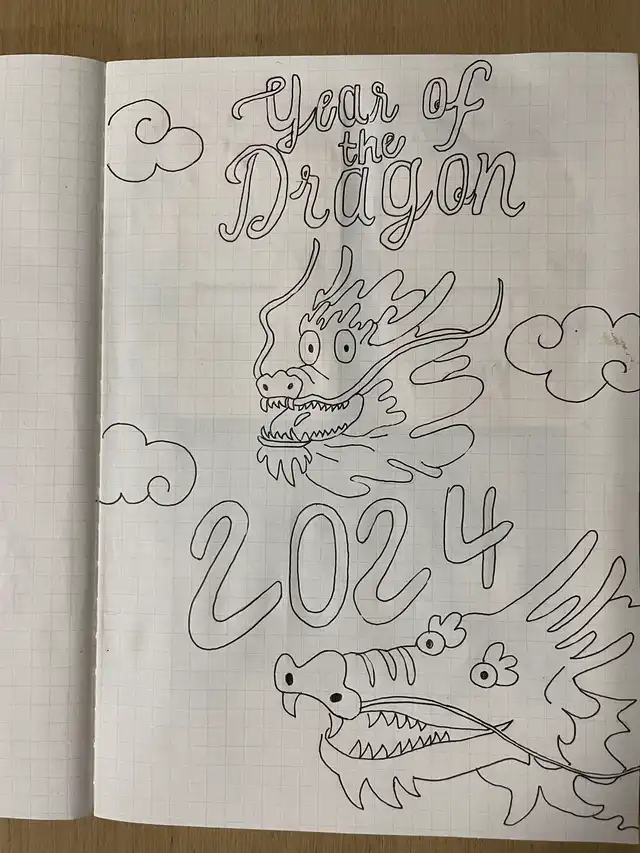 Year of
the
Dragon
2024